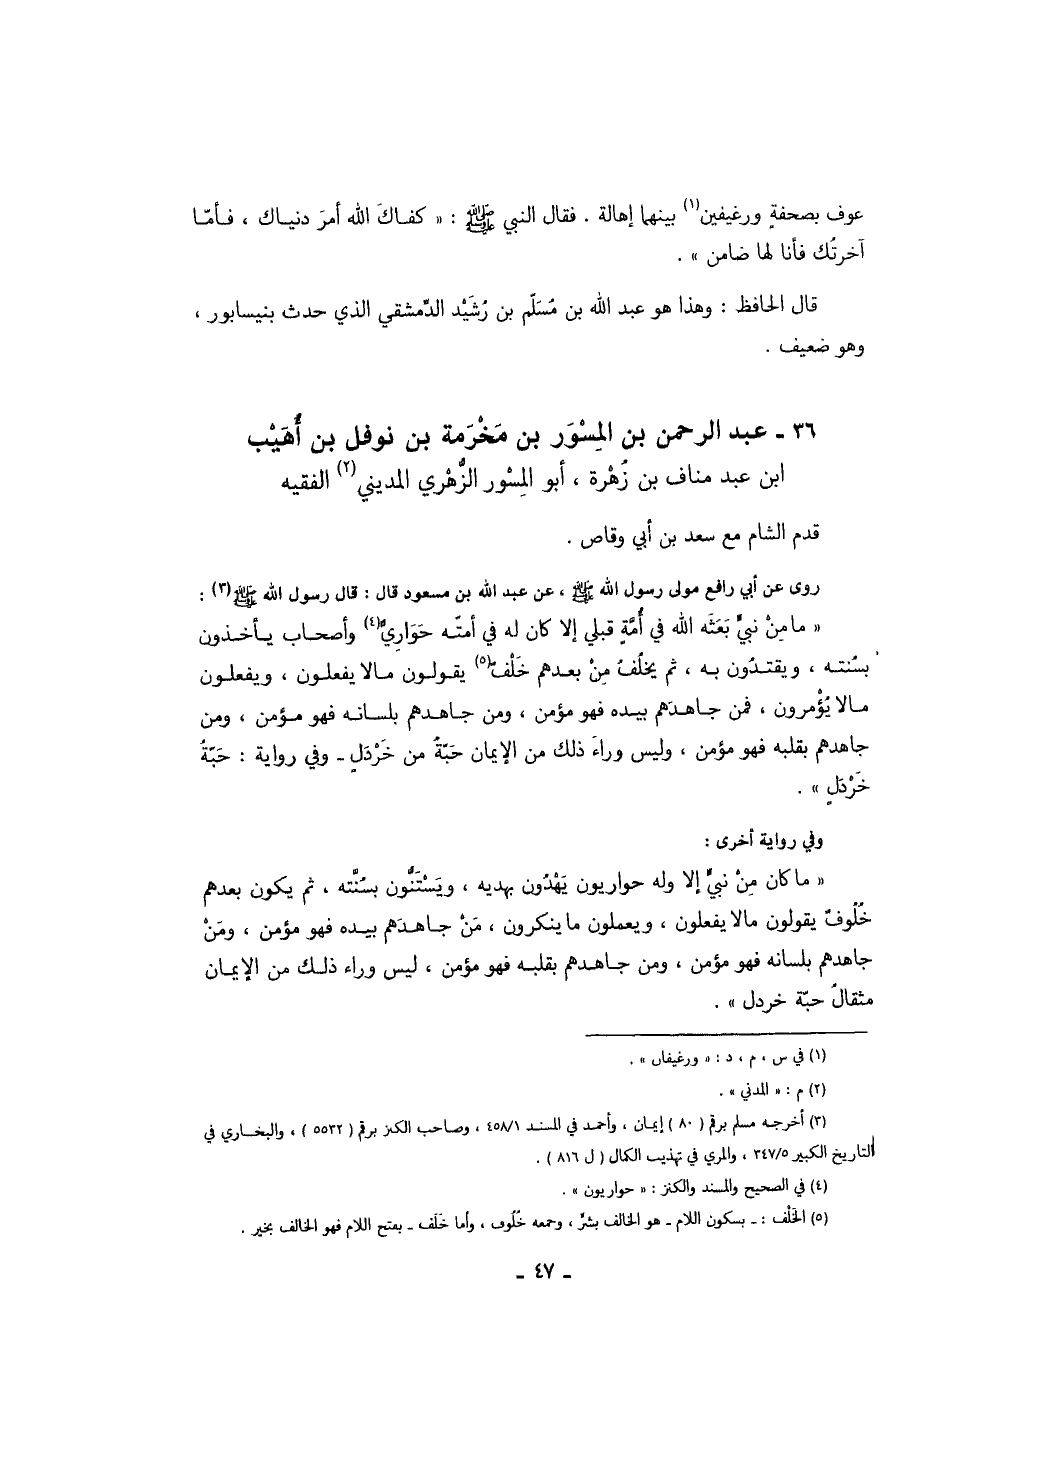 عوف بصحفةٍ ورغيفين(١) بينهما إهالة . فقال النبي ﷺ : « كفـاكَ الله أمرَ دنيـاك ، فـأمّـا
آخرتُك فأنا لها ضامن » .
قال الحافظ : وهذا هو عبد الله بن مُسَلّم بن رُشَيْد الدّمشقي الذي حدث بنيسابور ،
وهو ضعيف .
٣٦ ـ عبد الرحمن بن المِسْوَر بن مَخْرَمة بن نوفل بن أُهَيْب
ابن عبد مناف بن زُهْرة ، أبو المِسْور الزُّهْري المديني(٢) الفقيه
قدم الشام مع سعد بن أبي وقاص .
روى عن أبي رافع مولى رسول الله ﷺ ، عن عبد الله بن مسعود قال : قال رسول الله ﷺ(٣) :
« ما مِنْ نبيٍّ بَعَثَه الله في أُمَّةٍ قبلي إلا كان له في أمتّـه حَوَارِيٌّ(٤) وأصحـاب يـأخـذون
بسُنتـه ، ويقتـدُون بـه ، ثم يخلُفُ مِنْ بعـدهم خَلْفٌ(٥) يقـولـون مـالا يفعلـون ، ويفعلـون
مـالا يُؤْمرون ، فمن جـاهـدَهم بيـده فهو مؤمن ، ومن جـاهـدهم بلسـانـه فهو مـؤمن ، ومن
جاهدهم بقلبه فهو مؤمن ، وليس وراءَ ذلك من الإيمان حَبّةٌ من خَرْدَلٍ ـ وفي رواية : حَبّةُ
خَرْدَلٍ » .
وفي رواية أخرى :
« ما كان مِنْ نبيٍّ إلا وله حواريون يَهْدُون بهديه ، ويَسْتَنُّون بسُنَّته ، ثم يكون بعدهم
خُلُوفٌ يقولون مالا يفعلون ، ويعملون ما ينكرون ، مَنْ جـاهـدَهم بيـده فهو مؤمن ، ومَنْ
جاهدهم بلسانه فهو مؤمن ، ومن جـاهـدهم بقلبـه فهو مؤمن ، ليس وراء ذلـك من الإيمـان
مثقالُ حبّة خردل » .
(١) في س ، م ، د : « ورغيفان » .
(٢) م : « المدني » .
(٣) أخرجـه مسلم برقم ( ٨٠ ) إيمان ، وأحمـد في المسنـد ٤٥٨/١ ، وصاحب الكنز برقم ( ٥٥٣٢ ) ، والبخـاري في
التاريخ الكبير ٣٤٧/٥ ، والمزي في تهذيب الكمال ( ل ٨١٦ ) .
(٤) في الصحيح والمسند والكنز : « حواريون » .
(٥) الخَلْف : ـ بسكون اللام ـ هو الخالف بشرٍّ ، وجمعه خُلُوف ، وأما خَلَف ـ بفتح اللام فهو الخالف بخير .
ـ ٤٧ ـ